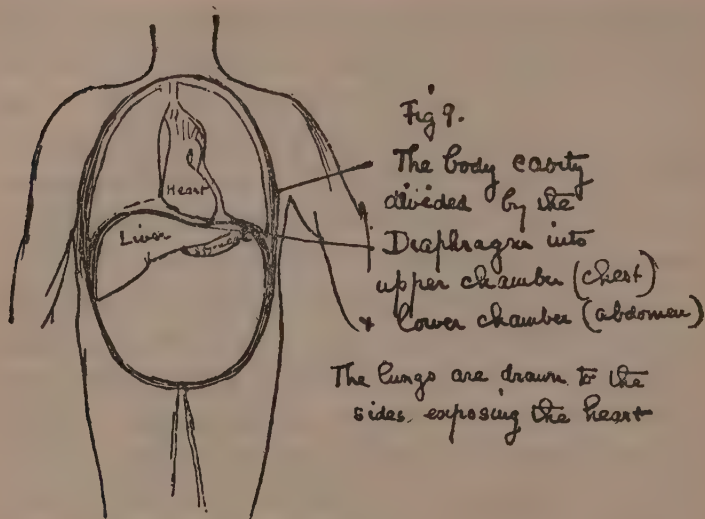 Fig 9.
The body cavity
divided by the
Diaphragm into
upper chamber (chest)
& lower chamber (abdomen)
The lungs are drawn to the
sides, exposing the heart
Heart
Liver